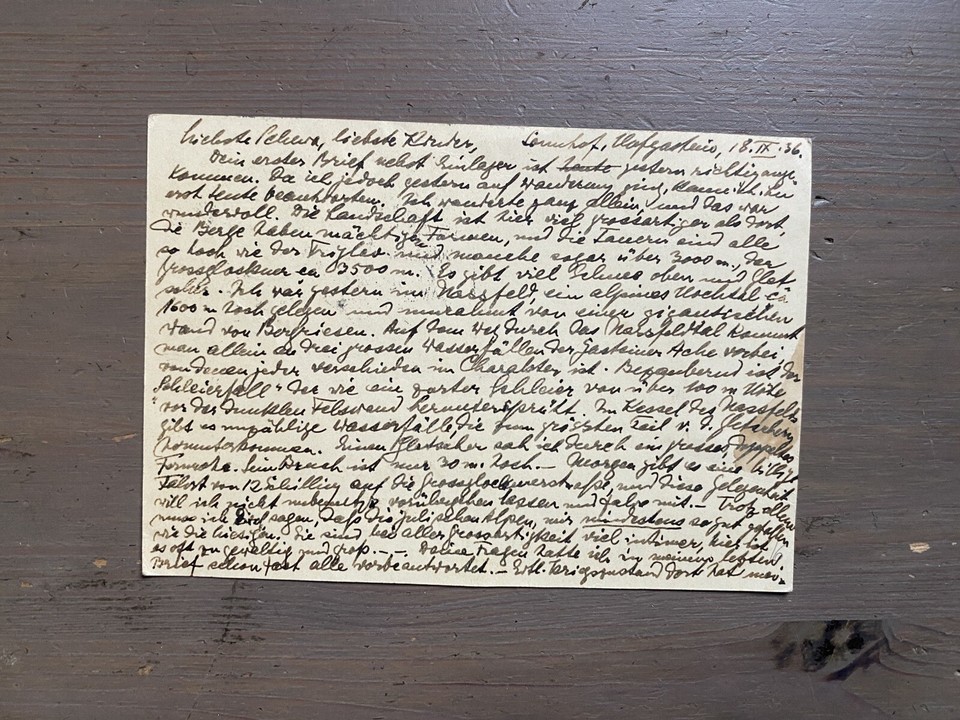 liebste Kinder, Sonnhof, Hofgastein, 18.IX.36.
Dein erster Brief nebst Einlagen ist heute gestern richtig ange-
kommen. Da ich jedoch gestern auf Wanderung ging, kann ich ihn
erst heute beantworten. Ich wanderte ganz allein, und das war
wundervoll. Die Landschaft ist hier viel grossartiger als dort,
die Berge haben mächtige Formen, und die Tauern sind alle
so hoch wie der Triglav und manche sogar über 3000 m, der
Grossglockner ca 3500 m. Es gibt viel Schnee oben und Glet-
scher. Ich war gestern im Nassfeld, ein alpines Hochtal ca
1600 m hoch gelegen und umrahmt von einer gigantischen
Wand von Bergriesen. Auf dem Weg durch das Nassfeldtal kommt
man allein an drei grossen Wasserfällen der Gasteiner Ache vorbei,
von denen jeder verschieden im Charakter ist. Bezaubernd ist der
"Schleierfall" der wie ein zarter Schleier von über 100 m Höhe
vor der dunklen Felswand heruntersprüht. Im Kessel des Nassfelds
gibt es unzählige Wasserfälle, die zum grössten Teil v. d. Gletschern
herunterkommen. Einen Gletscher sah ich durch ein grosses
Fernrohr. Sein Bruch ist nur 30 m hoch. — Morgen gibt es eine billige
Fahrt von 12 Schilling auf die Grossglocknerstrasse, und diese Gelegenheit
will ich nicht unbenutzt vorübergehen lassen und fahre mit. — Trotz allem
muss ich sagen, dass die julischen Alpen, mir mindestens so gut gefallen
wie die hiesigen. Sie sind bei aller Grossartigkeit viel intimer, hier ist
es oft zu gewaltig und groß. — — Deine Fragen hatte ich in meinem letzten
Brief schon fast alle vorbeantwortet. — dort hat man